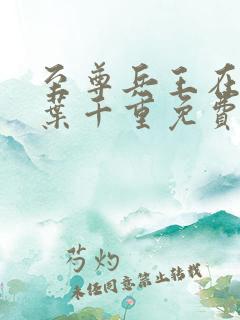 至尊兵王在
葉千重免費
芍灼
未经同意禁止转载